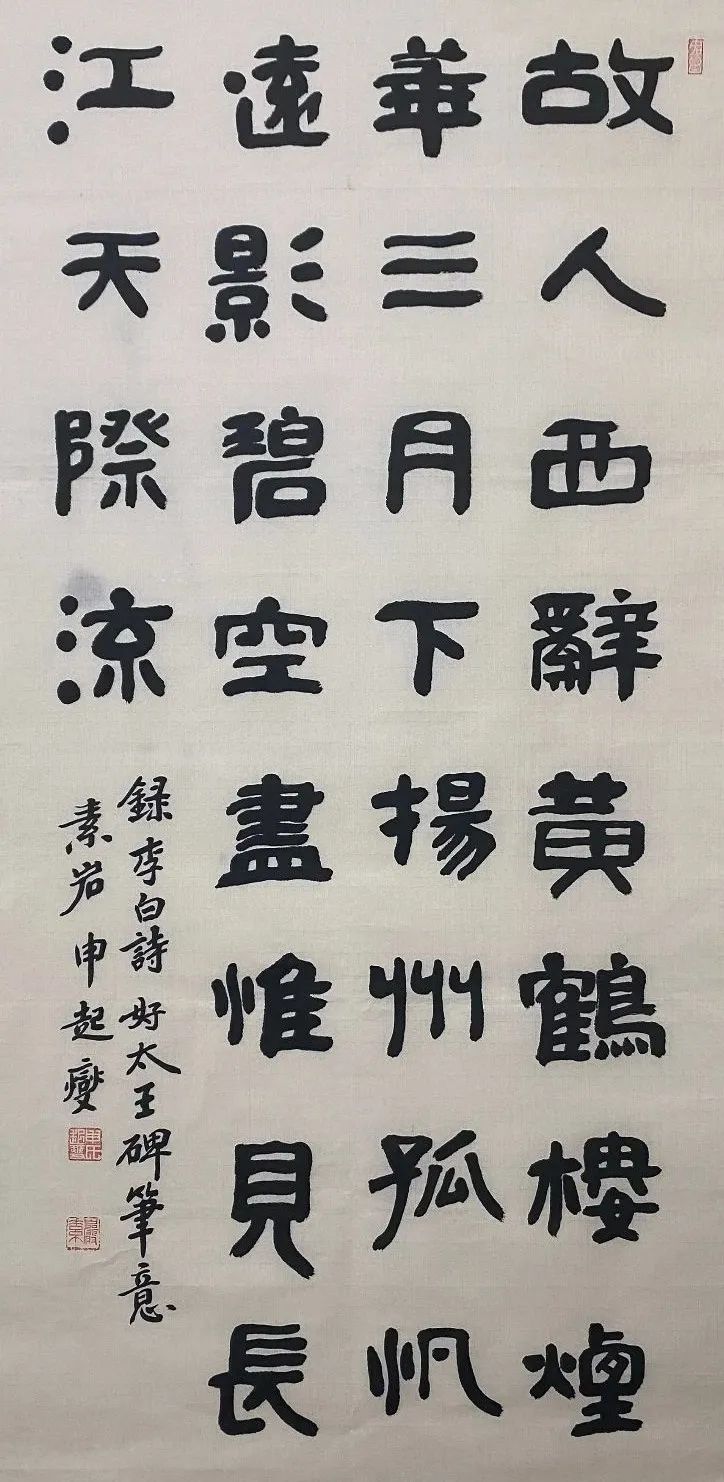 故人西辭黃鶴樓煙
華三月下揚州孤帆
遠影碧空盡惟見長
江天際流
録李白詩 好太王碑筆意
素岩申起燮